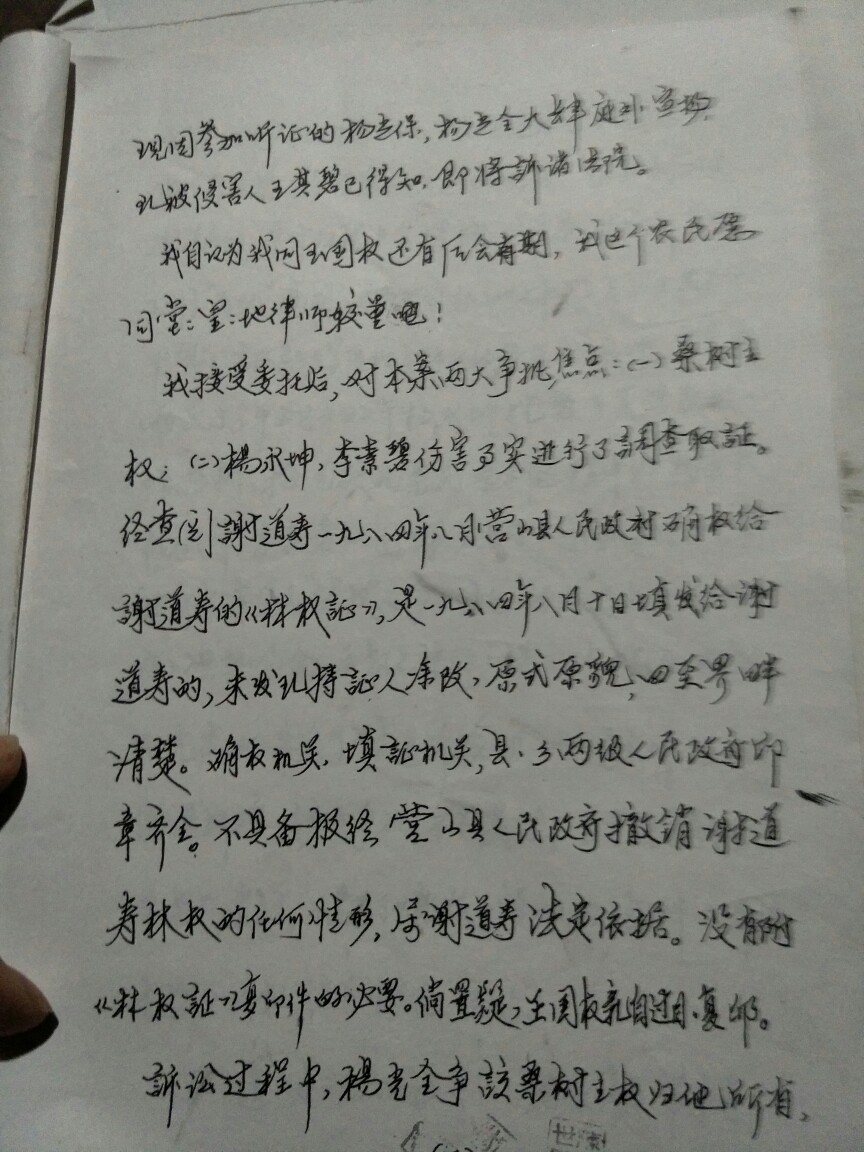 现因参加听证的杨光保,杨光全大肆庭外宣扬,
现被侵害人王其碧已得知,即将訴诸法院。
我自认为我同王国权还有后会有期,我这个农民愿
同堂:皇:地律师较量吧!
我接受委托后,对本案两大争执焦点:(一)桑树主
权;(二)楊永坤,李素碧伤害事实进行了調查取証。
经查(1)謝道寿一九八四年八月营山县人民政府确权给
謝道寿的《林权証》,是一九八四年八月十日填发给谢
道寿的,未发现持証人涂改,原式原貌,四至界畔
清楚。确权机关,填証机关,县、乡两级人民政府印
章齐全。不具备报经营山县人民政府撤銷谢道
寿林权的任何情形,属谢道寿法定依据。没有附
《林权証》复印件的必要。倘置疑,王国权亲自过目、复印。
訴讼过程中,楊光全争該桑树主权归他所有,